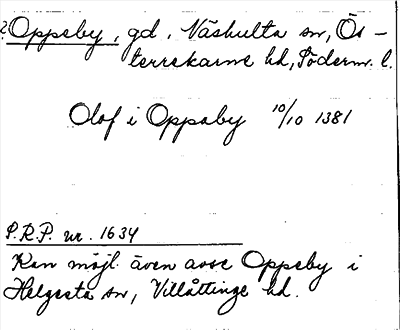 ? Oppeby, gd, Näshulta sn, Ös-
terrekarne hd, Söderm. l.
Olof i Oppaby 10/10 1381
P.R.P. nr. 1634
Kan möjl. även avse Oppeby i
Helgesta sn, Villåttinge hd.